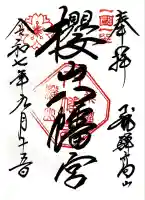 奉拝
飛驒高山
櫻山八幡宮
令和七年九月